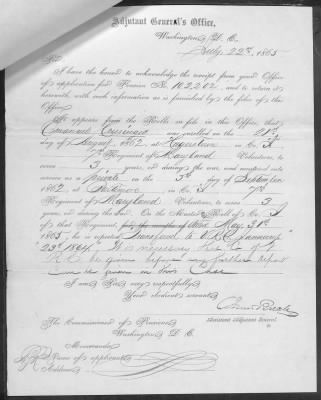 Adjutant General's Office,
Washington, D. C.
July 22d, 1865
Sir:
I have the honor to acknowledge the receipt from your Office
of application for Pension No. 102202, and to return it
herewith, with such information as is furnished by the files of this
Office.
It appears from the Rolls on file in this Office, that
Emanuel was enrolled on the 21st
day of August, 1862, at in Co.
7th Regiment of Maryland Volunteers, to
serve 3 years, or during the war, and mustered into
service as a Private on the day of September
1862, at in Co. 7th
Regiment of Maryland Volunteers, to serve 3
years, or during the war. On the Muster Roll of Co.
of that Regiment, May 31st
1865, he is reported transferred to V.R.C. January
23d 1864. It is necessary
be given before any further report
can be given in this case
I am, Sir, very respectfully,
Your obedient servant,
Assistant Adjutant General
The Commissioner of Pensions,
Washington, D. C.
Memoranda:
Name of applicant,
Address,